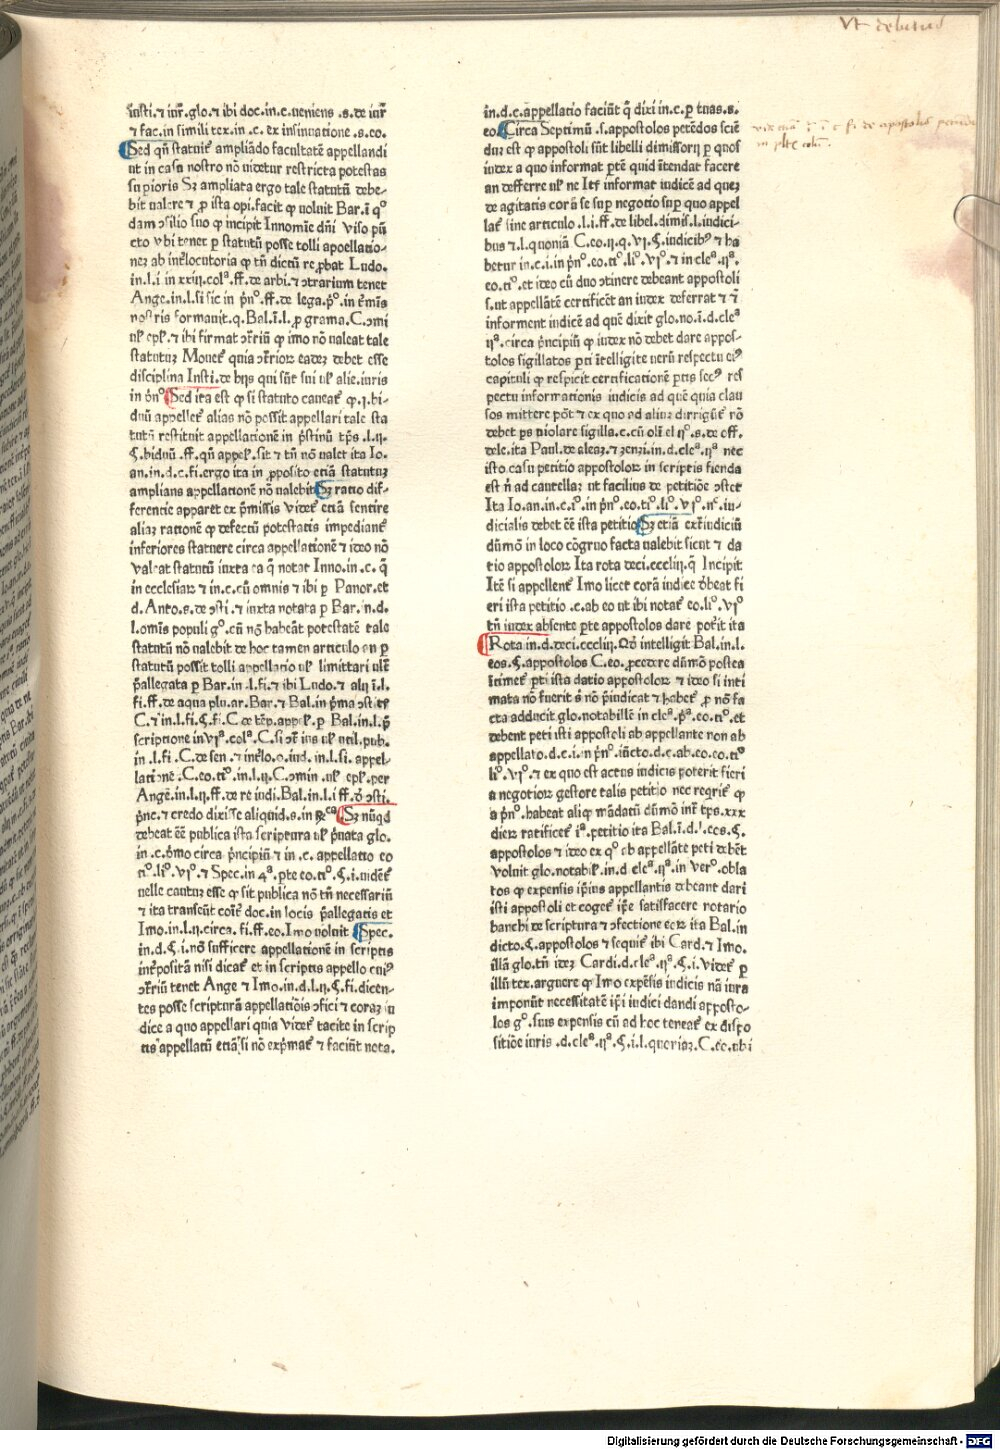 Vt debitus
insti.⁊ iur̄.glo.⁊ ibi doc.in.c.ueniens .s.de iur̄
⁊ fac.in simili tex.in .c. ex insinuatione .s.eo.
Sed qn̄ statuit᷑ ampliādo facultatē appellandi
ut in casu nostro nō uidetur restricta potestas
su pioris Sꝫ ampliata ergo tale statutū debe-
bit ualere ⁊ ꝓ ista opi.facit ꝙ uoluit Bar.ī qº
dam ɔsilio suo ꝙ incipit Innomīe dn̄i Viso pū
cto vbi tenet ꝑ statutū posse tolli apoellatio-
neꝫ ab inťlocutoria ꝙ tn̄ dictū reꝓbat Ludo.
in.l.i in xxiij.colª.ff.de arbi.⁊ ɔtrarium tenet
Ange.in.l.si sic in pn̄º.ff.de lega.pº.in ťmis
nostris formauit.q.Bal.ī.l.ꝓ grama.C.ɔmi
ul̕ epl̕.⁊ ibi firmat ɔťriū ꝙ imo nō ualeat tale
statutuꝫ Mouet᷑ quia ɔťrioꝝ eadeꝫ debet esse
disciplina Insti.de hijs qui sūt sui ul̕ alie.iuris
in pn̄º Sed ita est ꝙ si statuto caueat᷑ ꝙ.ꝗ.bi-
duū appellet᷑ alias nō possit appellari tale sta
tutū restituit appellationē in pristinū tp̄s .l.ij.
¶.biduū.ff.qn̄ appel̕.sit ⁊ tn̄ nō ualet ita Io.
an.in.d.c.fi.ergo ita in ꝓposito etiā statutuꝫ
amplians appellationē nō ualebit Sꝫ ratio dif-
ferentie apparet ex p̄missis Videt᷑ etiā sentire
aliaꝫ rationē ꝙ defectū potestatis impediant᷑
inferiores statuere circa appellationē ⁊ ideo nō
valeat statutū iuxta ea q̄ notat Inno.in .c. q̄
in ecclesiaꝝ ⁊ in.c.cū omnis ⁊ ibi ꝑ Panor.et
d. Anto.s.de ɔsti .⁊ iuxta notata ꝑ Bar.in.d.
l.omīs populi gº.cū nō habeāt potestatē tale
statutū nō ualebit de hoc tamen articulo an ꝑ
statutū possit tolli appellatio ul̕ limittari ult̄
p̄allegata ꝑ Bar.in .l.fi.⁊ ibi Ludo.⁊ alij ī.l.
fi.ff.de aqua plu.ar.Bar.⁊ Bal.in p̄ma ɔstitᷓ
C.⁊ in.l.fi.¶.fi.C de tēp.appel̕.ꝑ Bal.in.l.p̄
scriptione in vjª.colª.C.si ɔt᷑ ius ul̕ util.pub.
in .l.fi .C.de sen .⁊ inťlo.o.iud. in.l.si. appel-
lationē .C.eo.tiº.in.l.ij.C.ɔmin .ul̕ epl̕.per
Angē.in.l.ij.ff.de re iudi.Bal.in.l.i ff.ð ɔsti.
p̄nc.⁊ credo dixisse aliquid.s.in Rᷓcª. Sꝫ nūqd
debeat eē publica ista scriptura ul̕ p̄uata glo.
in .c.p̄mo circa p̄ncipiū ⁊ in .c. appellatio eo
tiº.liº.vjº.⁊ Spec.in 4ª.pte eo.tiº.¶.i.uidet᷑
uelle cautuꝫ esse ꝙ sit publica nō tn̄ necessariū
⁊ ita transeūt coīt᷑ doc.in locis p̄allegatis et
Imo.in.l.ij.circa. fi.ff.eo.Imo uoluit Spec.
in.d.¶.i.nō sufficere appellationē in scriptis
inťpositā nisi dicat᷑ et in scriptis appello cuiꝰ
ɔťriū tenet Ange ⁊ Imo.in.d.l.ij.¶.fi.dicen-
tes posse scripturā appellatiōis ɔfici ⁊ coraꝫ iu
dice a quo appellari quia Videt᷑ tacite in scrip
tis appellatū etiā si nō exp̄mat᷑ ⁊ faciūt nota.
in.d.c.appellatio faciūt q̄ dixi in.c.ꝑ tuas.s.
eo. Circa Septimū .s.appostolos petēdos sciē
duꝫ est ꝙ apostoli sūt libelli dimissorij ꝑ quos
iudex a quo informat p̄tē quid ītendat facere
an defferre ul̕ ne Iteꝫ informat iudicē ad queꝫ
de agitatis corā se suꝑ negotio suꝑ quo appel
lat᷑ sine articulo .l.i.ff.de libel.dimis̄.l.iudici-
bus ⁊ .l.quoniā C.eo.ij.q.vj.¶.iudicibꝰ ⁊ ha
betur in.c.i.in pn̄º.eo.tiº.liº.vjº.⁊ in cleª.ijª.
eo.tiº.et ideo cū duo ɔtinere debeant appostoli
s.ut appellātē certificēt an iudex deferrat ⁊ ⁊̄
informent iudicē ad quē dixit glo.no.ī.d.cleª
ijª.circa p̄ncipiū ꝙ iudex nō debet dare appos-
tolos sigillatos ꝑti ītelligite uerū respectu eiꝰ
capituli ꝙ respicit certificationē ꝑtis secꝰ res
pectu informationis iudicis ad quē quia clau
sos mittere pōt ⁊ ex quo ad aliuꝫ dirrigūt᷑ nō
debet ps uiolare sigilla.c.cū oli el ijº.s.de off.
dele.ita Paul.de aleaꝝ.⁊ ꝫenꝫi.in.d.cleª.ijª nec
isto casu petitio appostoloꝝ in scriptis fienda
est n̄ ad cautellaꝫ ut facilius de petitiōe ɔstet
Ita Io.an.in.c.iº.in pn̄º.eo.tiº.liº.vjº.nᶜ.iu-
dicialis debet eē ista petitio Sꝫ etiā ext᷑iudiciū
dūmō in loco cōgruo facta ualebit sicut ⁊ da
tio appostoloꝝ Ita rota deci.ccclij.q̄ Incipit
Itē si appellent᷑ Imo licet corā iudice debeat fi
eri ista petitio .c.ab eo ut ibi notat᷑ eo.liº.vjº
tn̄ iudex absente ꝑte appostolos dare poťit ita
Rota in.d.deci.ccclij. Qð intelligit Bal.in.l.
eos.¶.appostolos C.eo.ꝓcedere dūmō postea
ītimet᷑ ꝑti ista datio appostoloꝝ ⁊ ideo si inti
mata nō fuerit s̄ nō p̄iudicat ⁊ habet᷑ ꝓ nō fa
cta adducit glo.notabillē in cleª.pª.eo.tiº.et
debent peti isti appostoli ab appellante non ab
appellato.d.c.i.in pn̄º.iūcto.d.c.ab.eo.eo.tiº
liº.vjº.⁊ ex quo est actus iudicis poterit fieri
a negotioꝝ gestore talis petitio nec reqrit᷑ ꝙ
a pn̄º.habeat aliꝙ mādatū dūmō inť tp̄s.xxx
dieꝝ ratificet᷑ iª.petitio ita Bal.ī.d.l.eos.¶.
appostolos ⁊ ideo ex qº ab appellāte peti debēt
voluit glo.notabil̕.in.d cleª.ijª.in verº.obla
tos ꝙ expensis ip̄ius appellantis debeant dari
isti appostoli et coget᷑ ip̄e satisfacere notario
banchi de scriptura ⁊ ɔfectione eoꝝ ita Bal.in
dicto.¶.appostolos ⁊ sequit᷑ ibi Card.⁊ Imo.
illā glo.tn̄ ideꝫ Cardi.d.cleª.ijª.¶.i.Videt᷑ ꝑ
illū tex.arguere ꝙ Imo expēsis iudicis nā iura
imponūt necessitatē ip̄i iudici dandi apposto-
los gº.suis expensis cū ad hoc teneat᷑ ex dispo
sitiōe iuris .d.cleª.ijª.¶.i.l.quoniaꝫ.C.eo.ubi
Digitalisierung gefördert durch die Deutsche Forschungsgemeinschaft - DFG